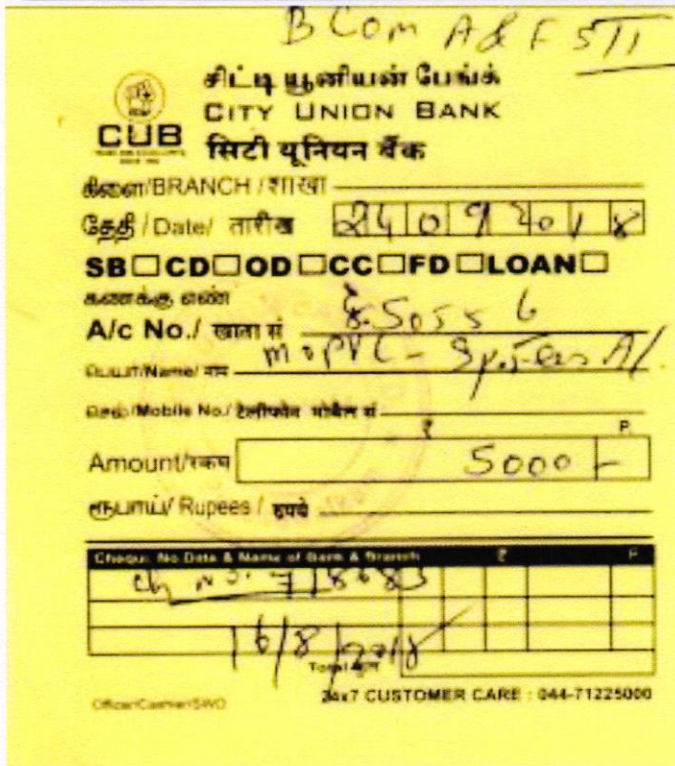 B Com A & F
சிட்டி யூனியன் பேங்க்
CITY UNION BANK
CUB
सिटी यूनियन बैंक
கிளை/BRANCH / शाखा
தேதி / Date/ तारीख 24092018
SB □ CD □ OD □ CC □ FD □ LOAN □
கணக்கு எண்
A/c No./ खाता सं
பெயர்/Name/ नाम
செல்/Mobile No./ टेलीफोन मोबैल सं
₹ P.
Amount/रकम 5000 -
ரூபாய்/ Rupees / रुपये
Cheque No. Date & Name of Bank & Branch ₹ P
Ch No. 718683
16/8/2018
Total
Officer/Cashier/SWO 24x7 CUSTOMER CARE : 044-71225000